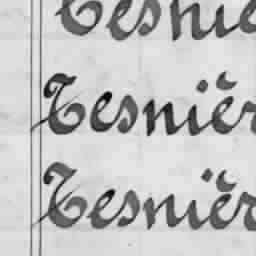 Tesnie
Tesniër
Tesniër